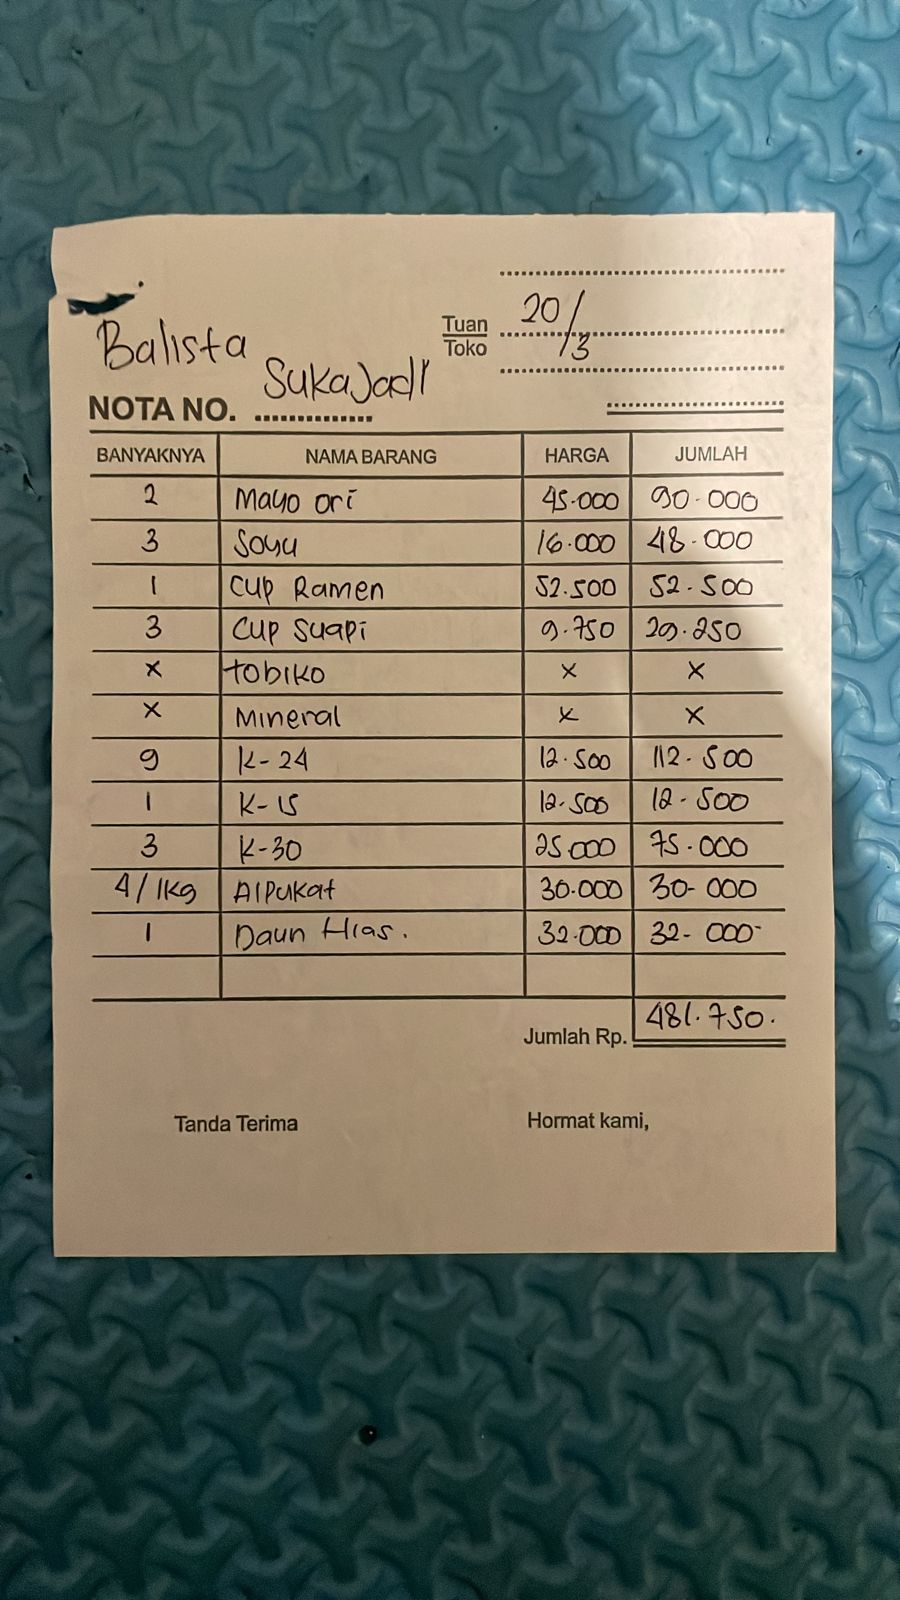 Balista
Sukajadi
Tuan
Toko
20/3
NOTA NO.
BANYAKNYA NAMA BARANG HARGA JUMLAH
2 Mayo ori 45.000 90.000
3 Soyu 16.000 48.000
1 Cup Ramen 52.500 52.500
3 Cup Suapi 9.750 29.250
x tobiko x x
x Mineral x x
9 K-24 12.500 112.500
1 K-15 12.500 12.500
3 K-30 25.000 75.000
4/1kg Alpukat 30.000 30-000
1 Daun Hias. 32.000 32-000-
Jumlah Rp. 481.750.
Tanda Terima Hormat kami,